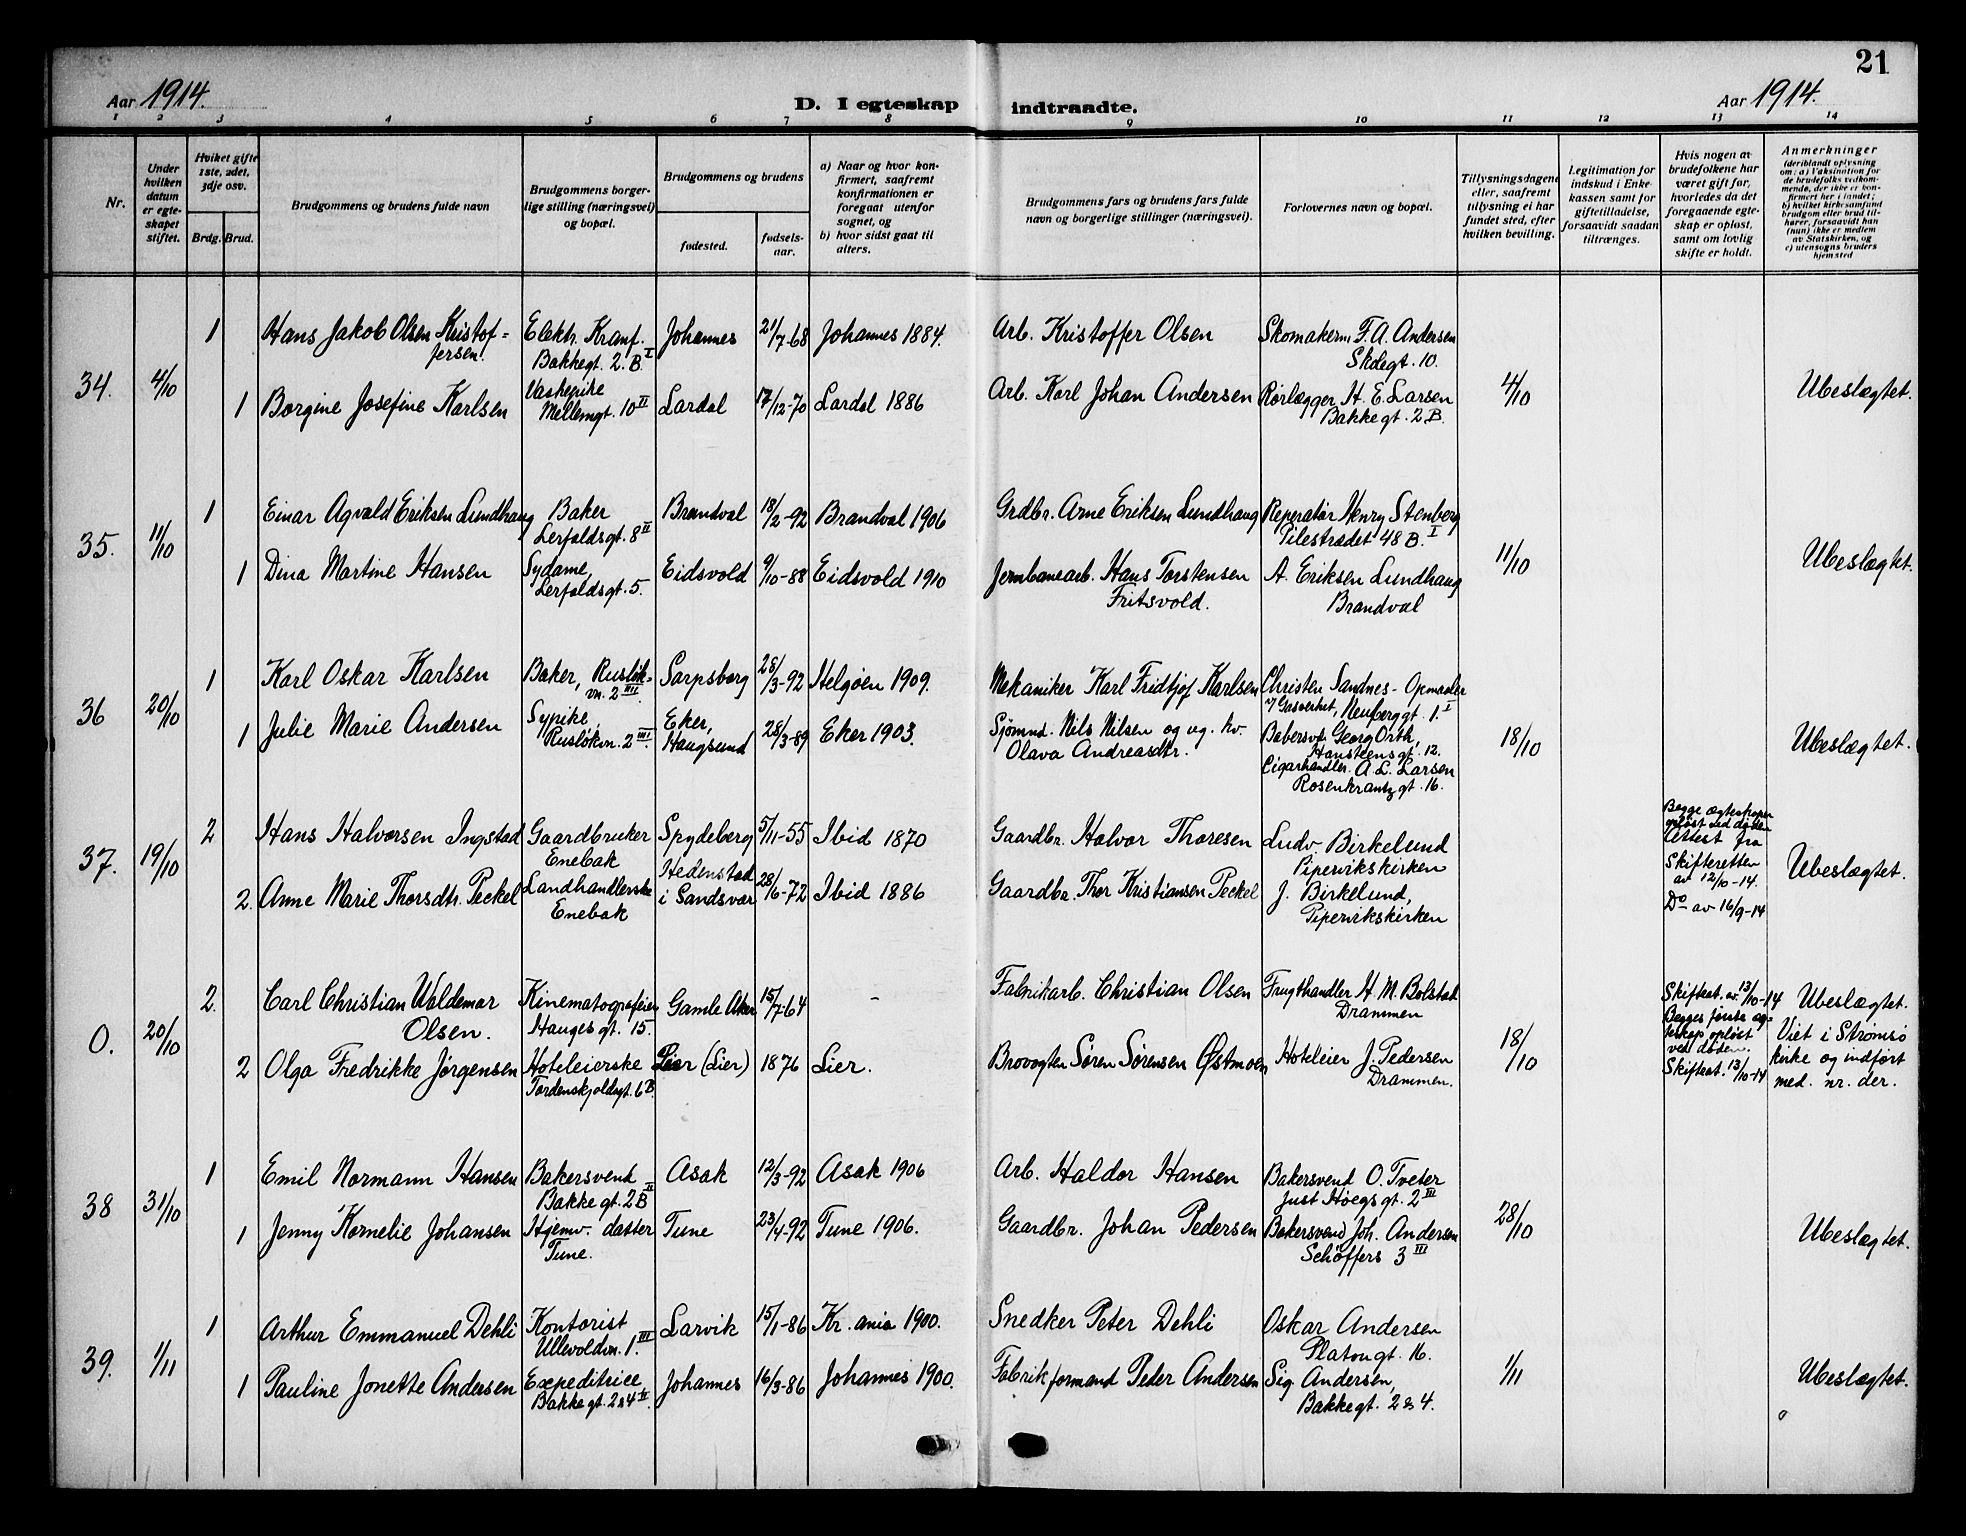 21
Aar 1914.
D. I egteskap indtraadte.
Aar 1914.
1 2 3 4 5 6 7 8 9 10 11 12 13 14
Nr.
Under hvilken datum er egteskapet stiftet.
Hviket gifte 1ste, 2det, 3dje osv.
Brdg. Brud.
Brudgommens og brudens fulde navn
Brudgommens borger-
lige stilling (næringsvei)
og bopæl.
Brudgommens og brudens
fødested.
fødsels-
aar.
a) Naar og hvor kon-
firmert, saafremt
konfirmationen er
foregaat utenfor
sognet, og
b) hvor sidst gaat til
alters.
Brudgommens fars og brudens fars fulde
navn og borgerlige stillinger (næringsvei).
Forlovernes navn og bopæl.
Tillysningsdagene
eller, saafremt
tillysning ei har
fundet sted, efter
hvilken bevilling.
Legitimation for
indskud i Enke-
kassen samt for
giftetilladelse,
forsaavidt saadan
tiltrænges.
Hvis nogen av
brudefolkene har
været gift før,
hvorledes da det
foregaaende egte-
skap er opløst,
samt om lovlig
skifte er holdt.
Anmerkninger
(deriblandt oplysning
om: a) Vaksination for
de brudefolks vedkom-
mende, der ikke er kon-
firmert her i landet;
b) hvilket kirkesamfund
brudgom eller brud til-
hører, forsaavidt han
(hun) ikke er medlem
av Statskirken, og
c) utensogns bruders
hjemsted
34. 4/10
1 Hans Jakob Olsen Kristof-
fersen. Elektr. Kranf.
Bakkegt. 2. B. I Johannes 21/7-68 Johannes 1884. Arb. Kristoffer Olsen Skomakerm. F. A. Andersen
Skolegt. 10.
1 Borgine Josefine Karlsen Vaskepike
Mellemgt. 10 II Lardal 17/12-70 Lardal 1886 Arb. Karl Johan Andersen Rørlægger H. E. Larsen
Bakkegt. 2 B. 4/10 Ubeslægtet.
35. 11/10
1 Einar Agvald Eriksen Lundhaug Baker
Lerfaldsgt. 8 II Brandval 18/2-92 Brandval 1906 Grdbr. Arne Eriksen Lundhaug Reperatør Henry Stenberg
Pilestrædet 48 B. I
1 Dina Martine Hansen Sydame,
Lerfaldsgt. 5. Eidsvold 9/10-88 Eidsvold 1910 Jernbanearb. Hans Torstensen
Fritsvold. A. Eriksen Lundhaug
Brandval 11/10 Ubeslægtet.
36 20/10
1 Karl Oskar Karlsen Baker, Rusløk-
vn. 2 III. Sarpsborg 28/3-92 Helgøen 1909. Mekaniker Karl Fridtjof Karlsen Christen Sandnes - Opmaaler
v/ Gasverket, Neuberggt. 1. I
1 Julie Marie Andersen Sypike,
Rusløkvn. 2 III. Eker,
Haugsund 28/3-89 Eker 1903. Sjømnd. Nils Nilsen og ug. kv.
Olava Andreasdtr. Georg Orth,
Hansteensgt. 12.
Cigarhandler. A. L. Larsen
Rosenkrantzgt. 16. 18/10 Ubeslægtet.
37. 19/10
2 Hans Halvorsen Ingstad Gaardbruker
Enebak Spydeberg 5/11-55 Ibid 1870 Gaardbr. Halvor Thoresen Ludv. Birkelund
Pipervikskirken
2. Anne Marie Thorsdtr. Peckel Landhandlerske
Enebak Hedenstad
i Sandsvær 28/6-72 Ibid 1886 Gaardbr. Thor Kristiansen Peckel J. Birkelund,
Pipervikskirken
Begge ægteskaper
opløst ved døden
Attest fra
Skifteretten
av 12/10-14.
Do av 16/9-14
Ubeslægtet.
0. 20/10
2. Carl Christian Waldemar
Olsen. Kinematografeier
Hauges gt. 15. Gamle Aker 15/7-64 - Fabrikarb. Christian Olsen Frugthandler H. M. Bolstad
Drammen
2 Olga Fredrikke Jørgensen Hoteleierske
Tordenskjoldsgt. 6 B. Lier (Lier) 1876 Lier. Brovogten Søren Sørensen Østmoen Hoteleier J. Pedersen
Drammen. 18/10
Skifteat. av. 13/10-14
Begges første eg-
teskap opløst
ved døden.
Skifteat. 13/10-14
Ubeslægtet.
Viet i Strømsø
kirke og indført
med. nr. der.
38 31/10
1 Emil Normann Hansen Bakersvend
Bakkegt. 2B II Asak 12/3-92 Asak 1906 Arb. Haldor Hansen Bakersvend O. Tveter
Just Høegs gt. 2 III
1 Jenny Kornelie Johansen Hjemv. datter
Tune. Tune 23/4-92 Tune 1906. Gaardbr. Johan Pedersen Bakersvend Joh. Andersen
Schøffers 3 III 28/10 Ubeslægtet.
39. 1/11
1 Arthur Emmanuel Dehli Kontorist
Ullevoldvn. 1. III Larvik 15/1-86 Kr. ania 1900. Snedker Peter Dehli Oskar Andersen
Platougt. 16.
1 Pauline Jonette Andersen Expeditrice
Bakkegt. 2&4 II. Johannes 16/3-86 Johannes 1900. Fabrikformand Peder Andersen Sig. Andersen,
Bakkegt. 2 & 4. 1/11 Ubeslægtet.